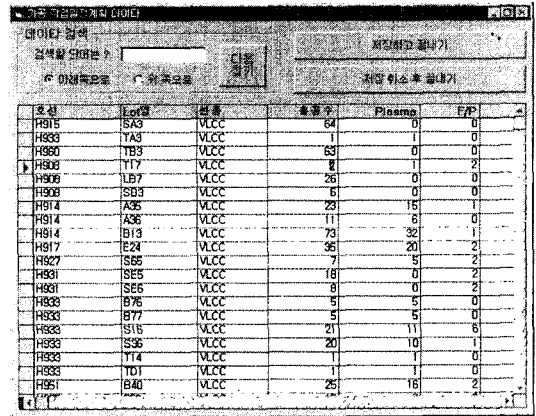 데이타 검색
검색할 단어는 ?
저장하고 끝내기
아래쪽으로 위쪽으로
저장 취소 후 끝내기
호선 Lot명 선종 Plasma F/P
H915 SA3 VLCC 64 0 0
H933 TA3 VLCC 1 1 0
H960 TB3 VLCC 63 0 0
H908 T17 VLCC 1 2
H908 LB7 VLCC 26 0 0
H908 SB3 VLCC 6 0 0
H914 A35 VLCC 23 15 1
H914 A36 VLCC 11 6 0
H914 B13 VLCC 73 32 1
H917 E24 VLCC 36 20 2
H927 S66 VLCC 7 5 2
H931 SE5 VLCC 18 0 2
H931 SE6 VLCC 8 0 2
H933 B76 VLCC 5 5 0
H933 B77 VLCC 5 5 0
H933 S16 VLCC 21 11 6
H933 S36 VLCC 20 10 1
H933 T14 VLCC 1 1 0
H933 TD1 VLCC 1 1 0
H951 B40 VLCC 25 16 2